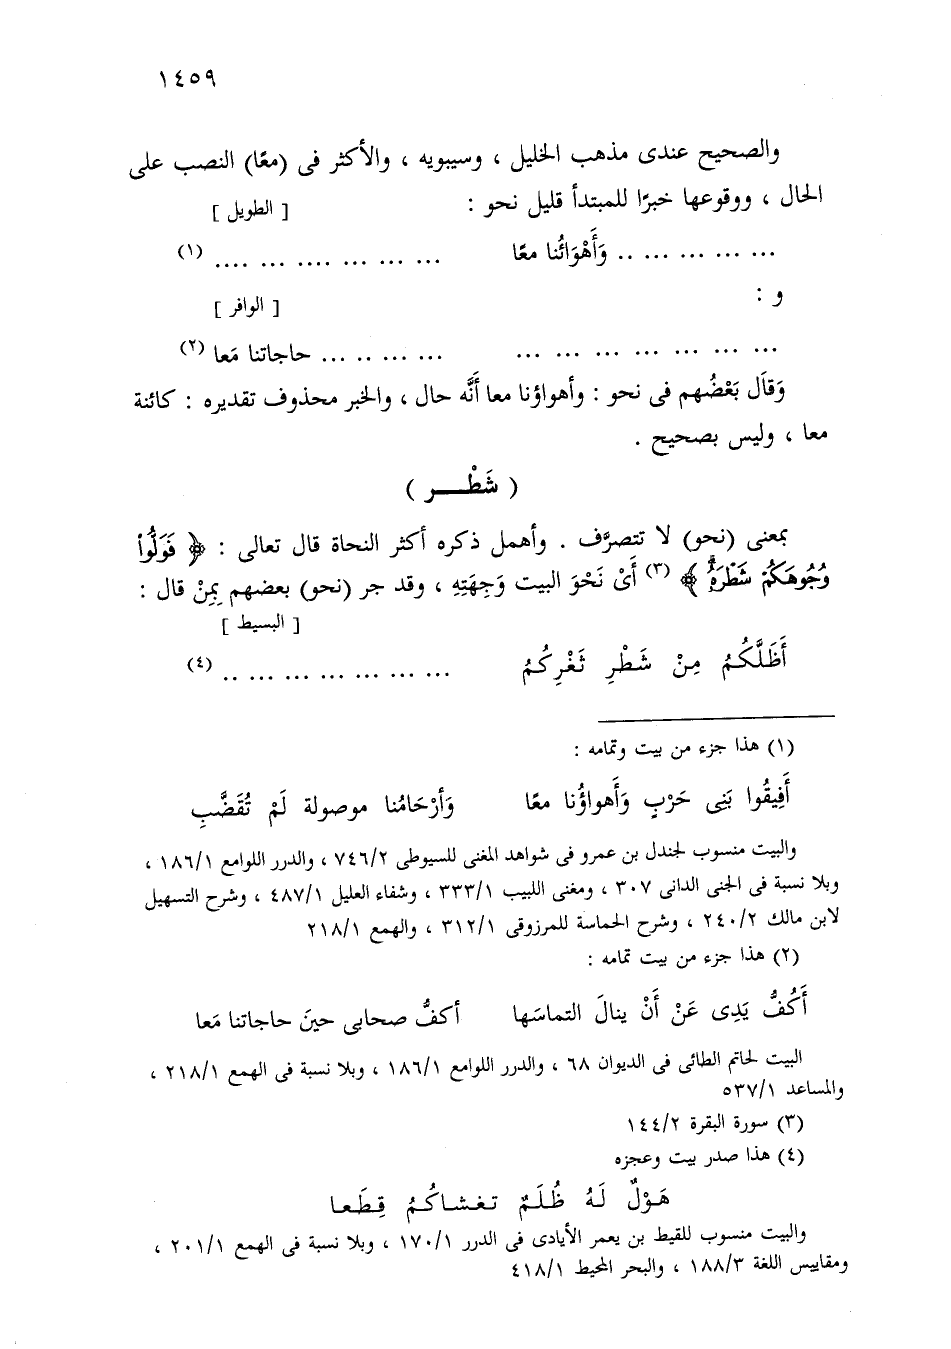 ١٤٥٩
والصحيح عندى مذهب الخليل ، وسيبويه ، والأكثر فى (معًا) النصب على
الحال ، ووقوعها خبرًا للمبتدأ قليل نحو : [ الطويل ]
... ... ... ... .. وَأَهْوَائُنا معًا ... ... ... .... ... .... (١)
و : [ الوافر ]
... ... ... ... ... ... ... ... ... .. ... حاجاتنا مَعا (٢)
وَقاَل بَعْضُهم فى نحو : وأهواؤنا معا أَنَّه حال ، والخبر محذوف تقديره : كائنة
معا ، وليس بصحيح .
( شَطْــــر )
بمعنى (نحو) لا تتصرَّف . وأهمل ذكره أكثر النحاة قال تعالى : ﴿ فَوَلُّوا۟
وُجُوهَكُمْ شَطْرَهُۥ ﴾ (٣) أَىْ نَحْوَ البيت وَجِهَتِهِ ، وقد جر (نحو) بعضهم بِمِنْ قال :
[ البسيط ]
أَظَلَّكُمُ مِنْ شَطْرِ ثَغْرِكُمُ ... ... ... ... ... ... .. (٤)
(١) هذا جزء من بيت وتمامه :
أَفِيقُوا بَنِى حَرْبٍ وَأَهواؤُنا معًا وَأرْحَامُنا موصولة لَمْ تُقَضَّبِ
والبيت منسوب لجندل بن عمرو فى شواهد المغنى للسيوطى ٧٤٦/٢ ، والدرر اللوامع ١٨٦/١ ،
وبلا نسبة فى الجنى الدانى ٣٠٧ ، ومغنى اللبيب ٣٣٣/١ ، وشفاء العليل ٤٨٧/١ ، وشرح التسهيل
لابن مالك ٢٤٠/٢ ، وشرح الحماسة للمرزوقى ٣١٢/١ ، والهمع ٢١٨/١
(٢) هذا جزء من بيت تمامه :
أَكُفُّ يَدِى عَنْ أَنْ ينالَ التماسَها أكفُّ صحابى حينَ حاجاتنا مَعا
البيت لحاتم الطائى فى الديوان ٦٨ ، والدرر اللوامع ١٨٦/١ ، وبلا نسبة فى الهمع ٢١٨/١ ،
والمساعد ٥٣٧/١
(٣) سورة البقرة ١٤٤/٢
(٤) هذا صدر بيت وعجزه
هَوْلٌ لَهُ ظُلَمٌ تغشاكُمُ قِطَعا
والبيت منسوب للقيط بن يعمر الأيادى فى الدرر ١٧٠/١ ، وبلا نسبة فى الهمع ٢٠١/١ ،
ومقاييس اللغة ١٨٨/٣ ، والبحر المحيط ٤١٨/١